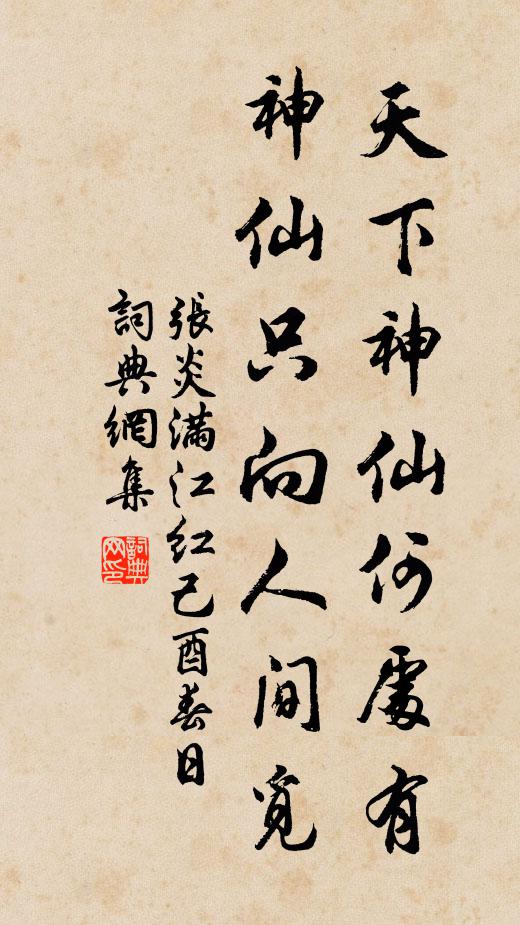 天下神仙何處有
神仙只向人间覓
張炎满江红己酉春日
詞典網集
詞典网印